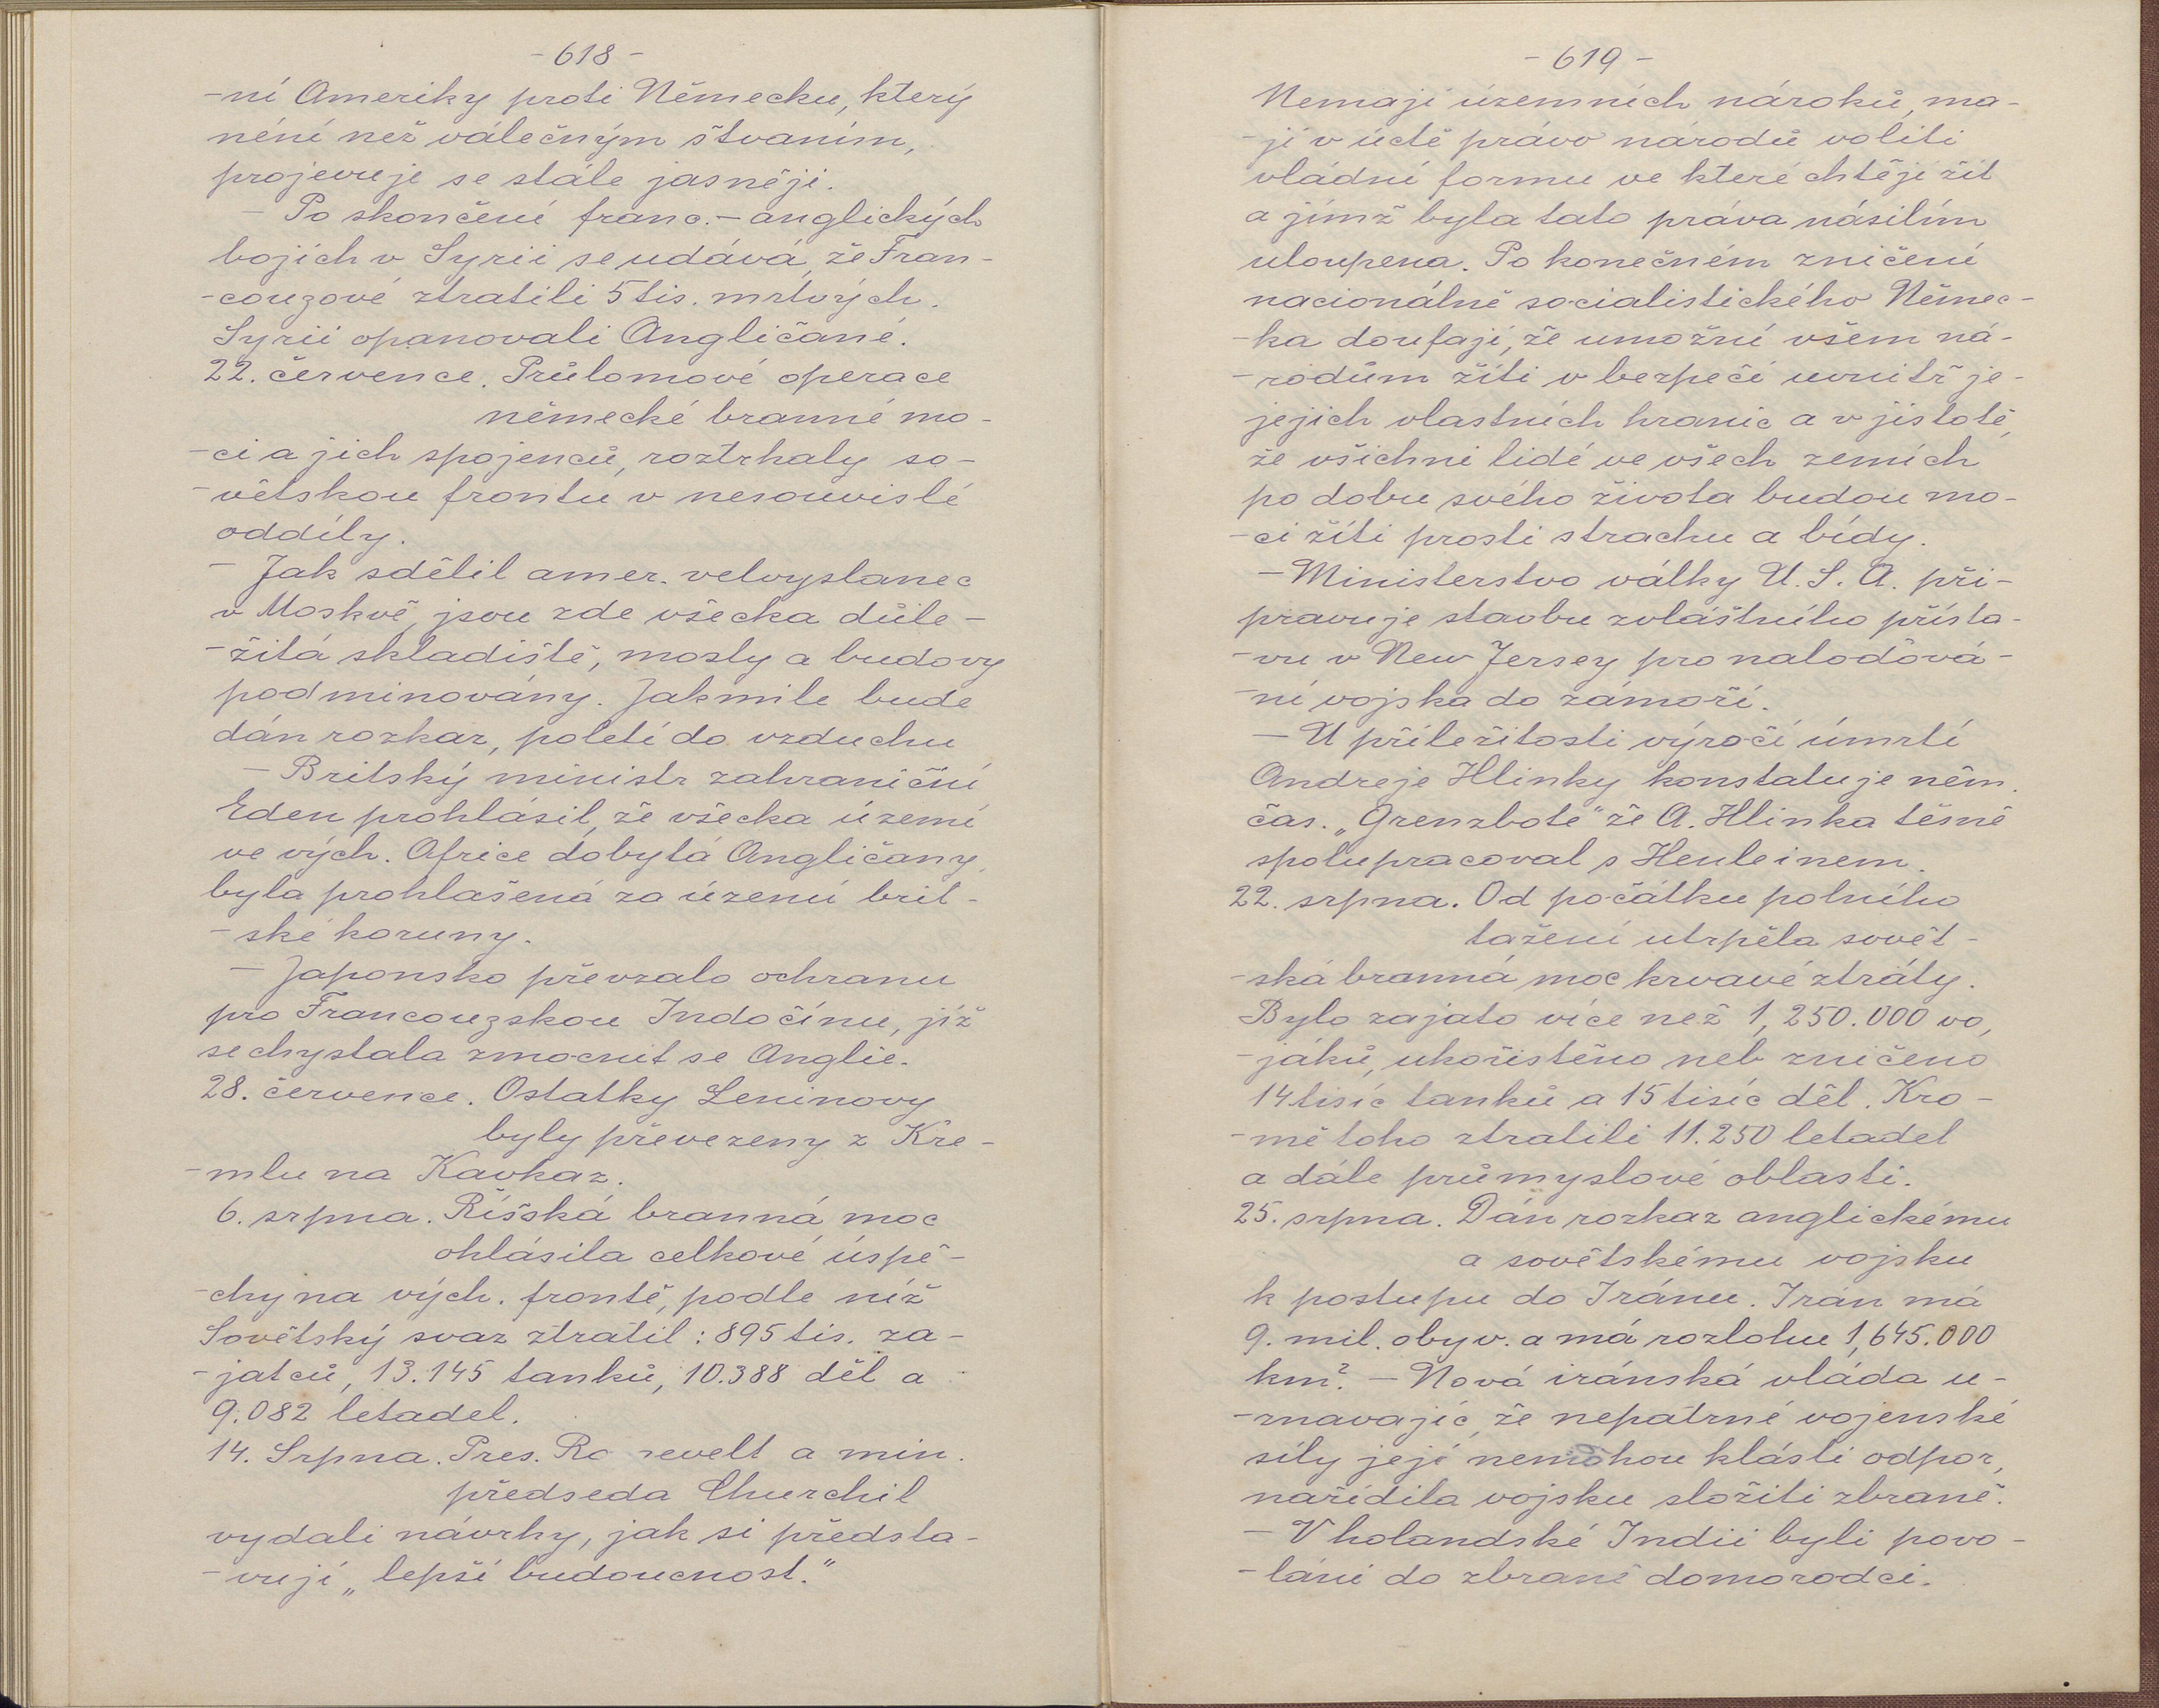 -618-
-ní Ameriky proti Německu, který
néní než válečným štvaním,
projevuje se stále jasněji.
- Po skončení franc.-anglických
bojích v Syrii se udává, že Fran-
-couzové ztratili 5 tis. mrtvých.
Syrii opanovali Angličané.
22. července. Průlomové operace
německé branné mo-
-ci a jich spojenců, roztrhaly so-
-větskou frontu v nesouvislé
oddíly.
- Jak sdělil amer. velvyslanec
v Moskvě, jsou zde všecka důle-
-žitá skladiště, mosty a budovy
podminovány. Jakmile bude
dán rozkaz, poletí do vzduchu
- Britský ministr zahraniční
Eden prohlásil, že všecka území
ve vých. Africe dobytá Angličany,
byla prohlašená za území brit-
-ské koruny.
- Japonsko převzalo ochranu
pro Francouzskou Indočínu, již
se chystala zmocnit se Anglie.
28. července. Ostatky Leninovy
byly převezeny z Kre-
-mlu na Kavkaz.
6. srpna. Říšská branná moc
ohlásila celkové úspě-
-chy na vých. frontě, podle níž
Sovětský svaz ztratil: 895 tis. za-
-jatců, 13.145 tanků, 10.388 děl a
9.082 letadel.
14. Srpna. Pres. Ro sevelt a min.
předseda Churchil
vydali návrhy, jak si předsta-
-vují „lepší budoucnost."
-619-
Nemají územních nároků, ma-
-jí v úctě právo národů voliti
vládní formu ve které chtějí žít
a jímž byla tato práva násilím
uloupena. Po konečném zničení
nacionálně socialistického Němec-
-ka doufají, že umožní všem ná-
-rodům žíti v bezpečí uvnitř je-
jejich vlastních hranic a v jistotě,
že všichni lidé ve všech zemích
po dobu svého života budou mo-
-ci žíti prosti strachu a bídy.
- Ministerstvo války U.S.A. při-
pravuje stavbu zvláštního přísta-
-vu v New Jersey pro naloďová-
-ní vojska do zámoří.
- U příležitosti výročí úmrtí
Andreje Hlinky konstatuje něm.
čas. „Grenzbote" že A. Hlinka těsně
spolupracoval s Henleinem.
22. srpna. Od počátku polního
tažení utrpěla sovět-
-ská branná moc krvavé ztráty.
Bylo zajato více než 1,250.000 vo,
-jáků, ukořistěno neb zničeno
14 tisíc tanků a 15 tisíc děl. Kro-
-mě toho ztratili 11.250 letadel
a dále průmyslové oblasti.
25. srpna. Dán rozkaz anglickému
a sovětskému vojsku
k postupu do Iránu. Iran má
9. mil. obyv. a má rozlohu 1,645.000
km². - Nová iránská vláda u-
-znavajíc, že nepatrné vojenské
síly její nemohou klásti odpor,
nařídila vojsku složiti zbraně.
- V holandské Indii byli povo-
-láni do zbraně domorodci.